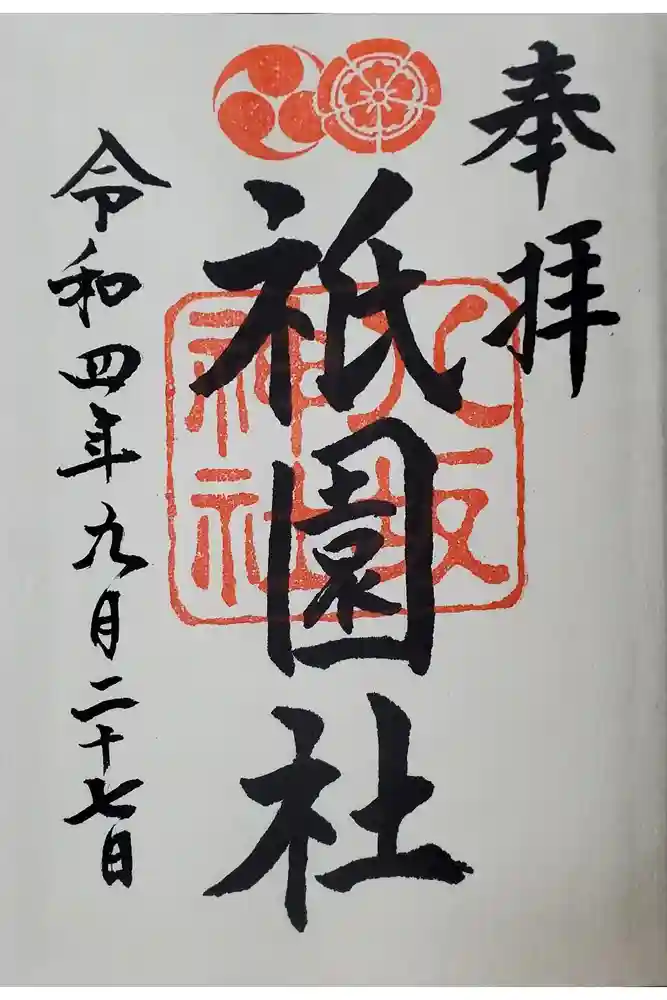 奉拝
八坂
神社
祇園社
令和四年九月二十七日